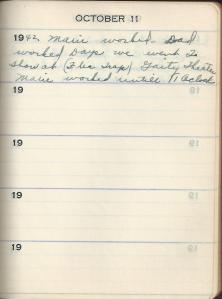 OCTOBER 11
1942 Marie worked. Dad
worked Days we went to
Show at (Flea Trap) Gaity Theater
Marie worked untill 11 Oclock
19
19
19
19